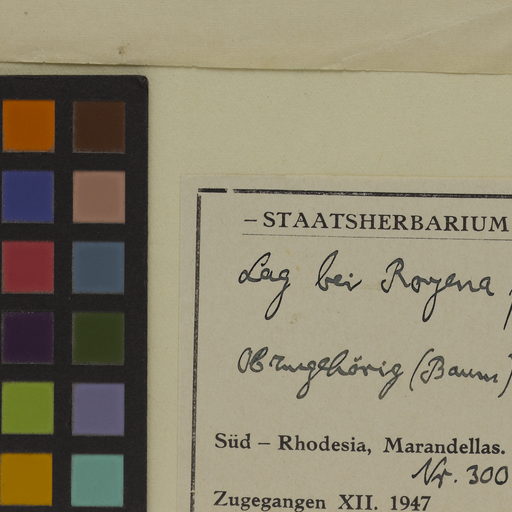 – STAATSHERBARIUM
Lag bei Royena
Ob zugehörig (Baum)
Süd – Rhodesia, Marandellas.
Nr. 300
Zugegangen XII. 1947